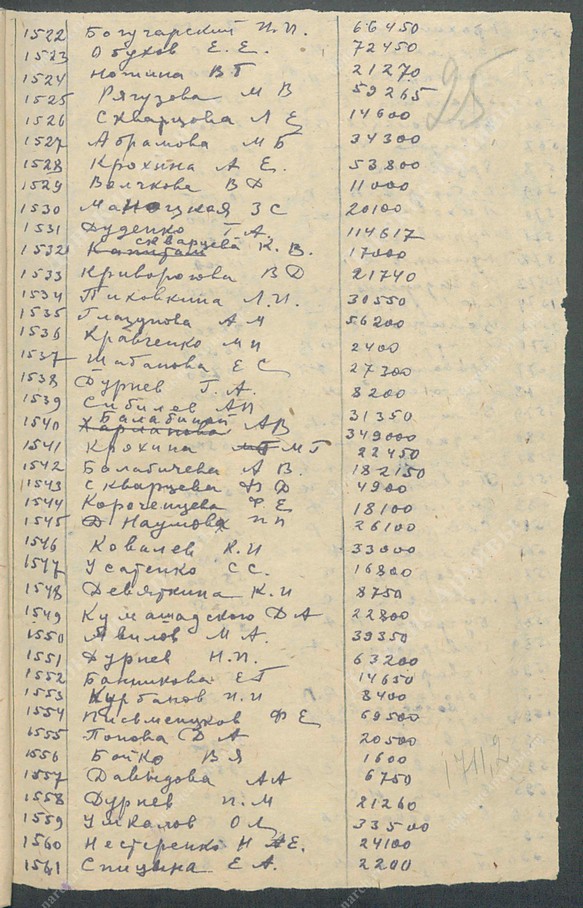 1522 Богучарский И.И. 66450
1523 Обухов Е.Е. 72450
1524 Ношина ВГ 21270
1525 Рягузова М В 59265
1526 Скварцова Л Е 14600
1527 Абрамова МБ 34300
1528 Крохина А Е. 53.800
1529 Волчкова ВД 11000
1530 20100
1531 Дуденко Г.А. 114617
1532 Скварцева К.В. 17000
1533 Криворотова ВД 21740
1534 Пиховкина Л.И. 30550
1535 Глазунова АМ 56200
1536 Кравченко МИ 2400
1537 Шабанова ЕС 27300
1538 Дурнев Г.А. 8200
1539 Сибилев АП 31350
1540 АВ 349000
1541 Крахина МГ 22450
1542 Балабичева АВ. 182150
1543 Скварцева 4900
1544 ФЕ 18100
1545 Наумова 26100
1546 Ковалев К.И 33000
1547 Усатенко СС. 16800
1548 Девяткина К.И 8750
1549 ДА 22800
1550 Явилов МА. 39350
1551 Дурнев Н.П. 63200
1552 Банникова ЕГ 14650
1553 Курбанов И.И 8400
1554 Письменсков ФЕ 69500
1555 Попова ДА 20500
1556 Бойко ВЯ 1600
1557 Давыдова АА 6750
1558 Дурнев П.М 21260
1559 Ушкалов 33500
1560 Нестеренко Н Е. 24100
1561 Спицына ЕА. 2200
25